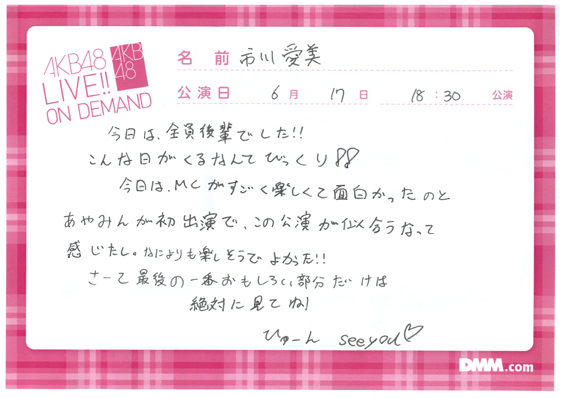 AKB48
LIVE!!
ON DEMAND
AKB
48
名 前 市川愛美
公演日 6月 17日 18:30 公演
今日は、全員後輩でした!!
こんな日がくるなんてびっくり!!
今日は、MCがすごく楽しくて面白かったのと
あやみんが初出演で、この公演が似合うなって
感じたし。なによりも楽しそうでよかった!!
さーて最後の一番おもしろい部分だけは
絶対に見てね!
ぴゅーん seeyou♡
DMM.com